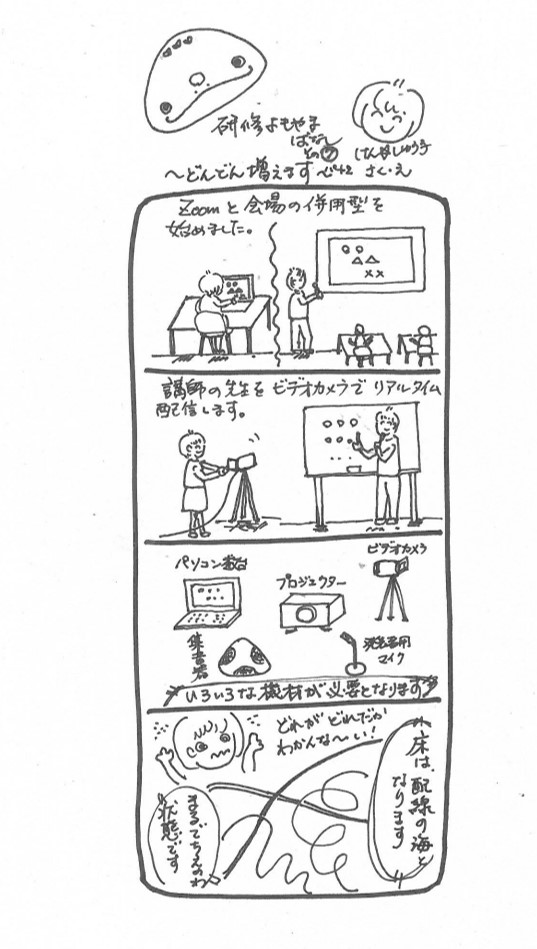 研修よもやま
ばなし
その⑦
けんしゅう子
さく・え
〜どんどん増えます
Zoomと会場の併用型を
始めました。
講師の先生をビデオカメラでリアルタイム
配信します。
パソコン数台
プロジェクター
ビデオカメラ
集音器
発言者用
マイク
いろいろな機材が必要となります
どれがどれだか
わかんな〜い!
床は、配線の海と
なります
まるでちえのわ
状態です